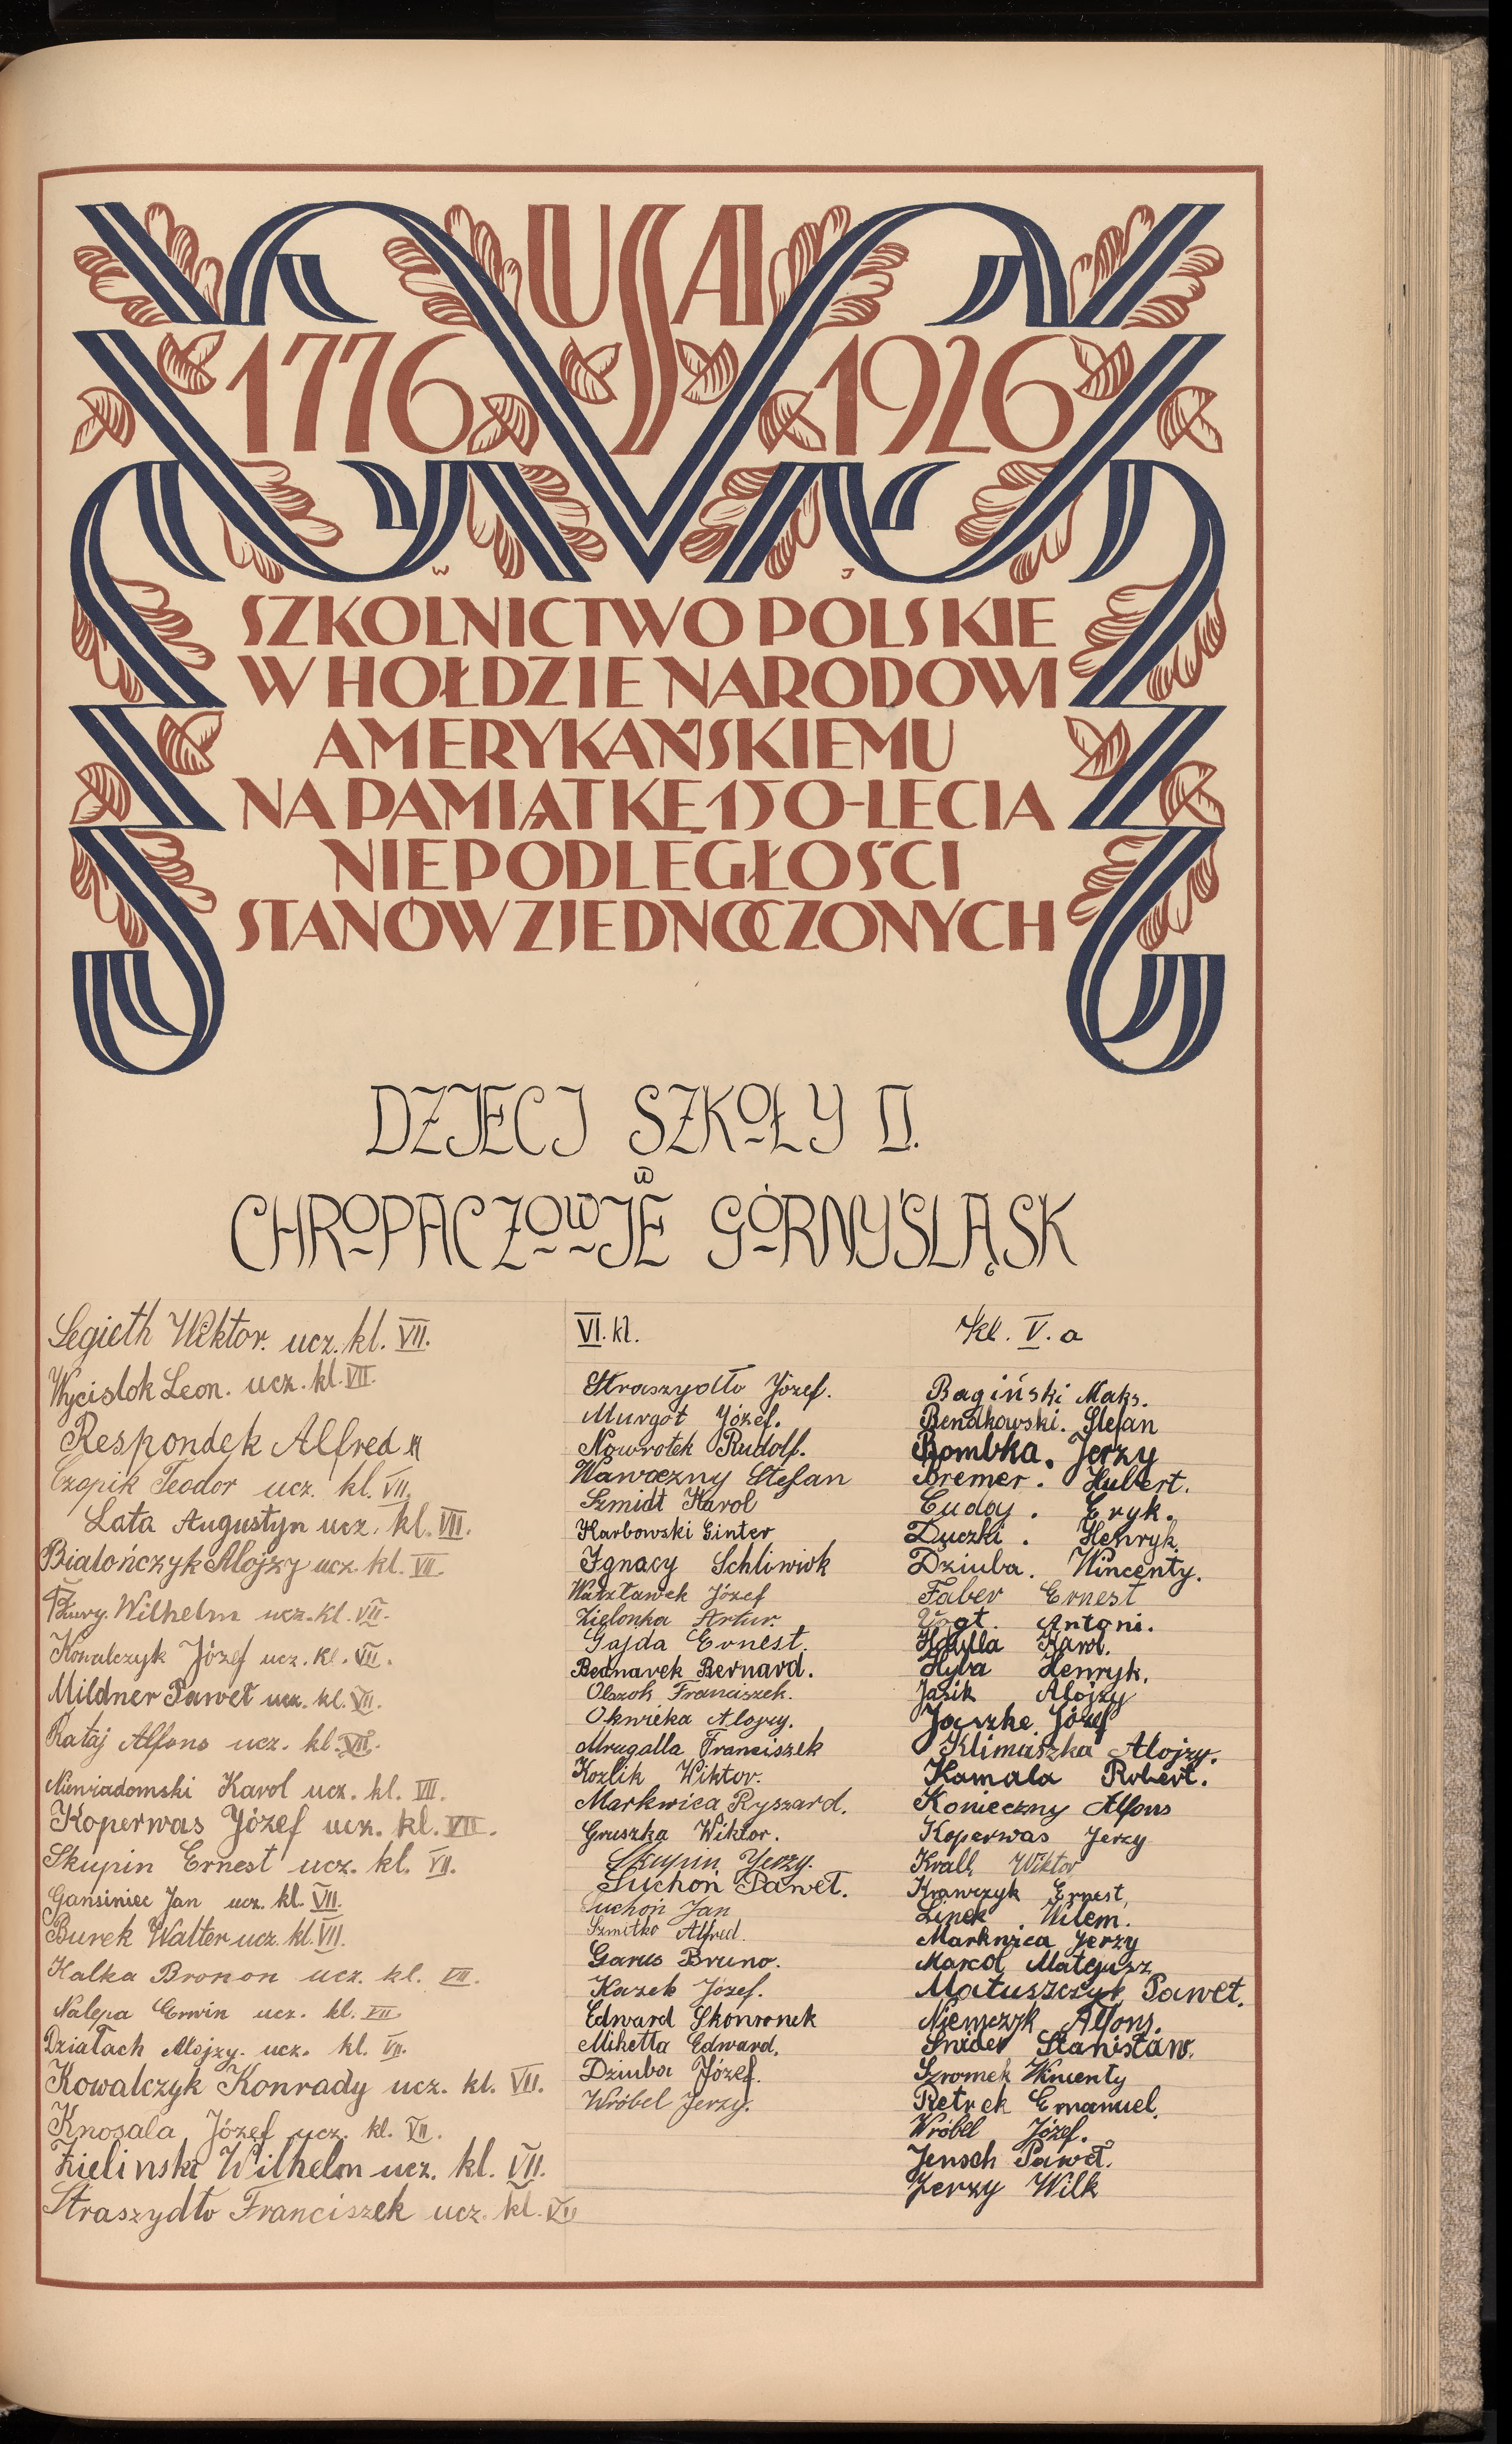 USA
1776 1926
W J
SZKOLNICTWO POLSKIE
W HOŁDZIE NARODOWI
AMERYKAŃSKIEMU
NA PAMIĄTKĘ 150-LECIA
NIEPODLEGŁOŚCI
STANÓW ZJEDNOCZONYCH
DZIECI SZKOŁY II.
W
CHROPACZOWIE GÓRNY ŚLĄSK
Segieth Wiktor. ucz. kl. VII.
Wycislok Leon. ucz. kl. VII.
Respondek Alfred
Czapik Teodor ucz. kl. VII.
Lata Augustyn ucz. kl. VII.
Bialończyk Alojzy ucz. kl. VII.
Wilhelm ucz. kl. VII.
Kowalczyk Józef ucz. kl. VII.
Mildner Paweł ucz. kl. VII.
Rataj Alfons ucz. kl. VII.
Niewiadomski Karol ucz. kl. VII.
Koperwas Józef ucz. kl. VII.
Skupin Ernest ucz. kl. VII.
Gansiniec Jan ucz. kl. VII.
Burek Walter ucz. kl. VII.
Kalka Bronon ucz. kl. VII.
Nalepa Erwin ucz. kl. VII
Działach Alojzy. ucz. kl. VII.
Kowalczyk Konrady ucz. kl. VII.
Knosala Józef ucz. kl. VII.
Zielinski Wilhelm ucz. kl. VII.
Straszydło Franciszek ucz. kl. VII
VI. kl.
Straszydło Józef.
Murgot Józef.
Nowrotek Rudolf.
Wawrzezny Stefan
Szmidt Karol
Karbowski Ginter
Ignacy Schliwiok
Watzławek Józef
Zielonka Artur.
Gajda Ernest.
Bednarek Bernard.
Olszok Franciszek.
Okwieka Alojzy.
Mrugalla Franciszek
Kozlik Wiktor.
Markwica Ryszard.
Gruszka Wiktor.
Skupin Jerzy.
Suchoń Paweł.
Suchoń Jan
Szmitko Alfred.
Garus Bruno.
Kazek Józef.
Edward Skowronek
Miketta Edward.
Dziuba Józef.
Wróbel Jerzy.
kl. V. a
Bagiński Maks.
Bendkowski. Stefan
Bombka. Jerzy
Bremer. Hubert.
Cuday. Eryk.
Duczki. Henryk.
Dziuba. Wincenty.
Faber Ernest
Vogt. Antoni.
Hdylla Karol.
Hyla Henryk.
Jasik Alojzy
Jaszke Józef
Klimaszka Alojzy.
Kamala Robert.
Konieczny Alfons
Koperwas Jerzy
Krall Wiktor
Krawczyk Ernest,
Linek. Wilem.
Markwica Jerzy
Marcol Mateusz
Matuszczyk Paweł.
Niemczyk Alfons.
Snider Stanisław.
Szromek Wincenty
Retrek Emanuel.
Wróbel Józef.
Jensch Paweł.
Jerzy Wilk